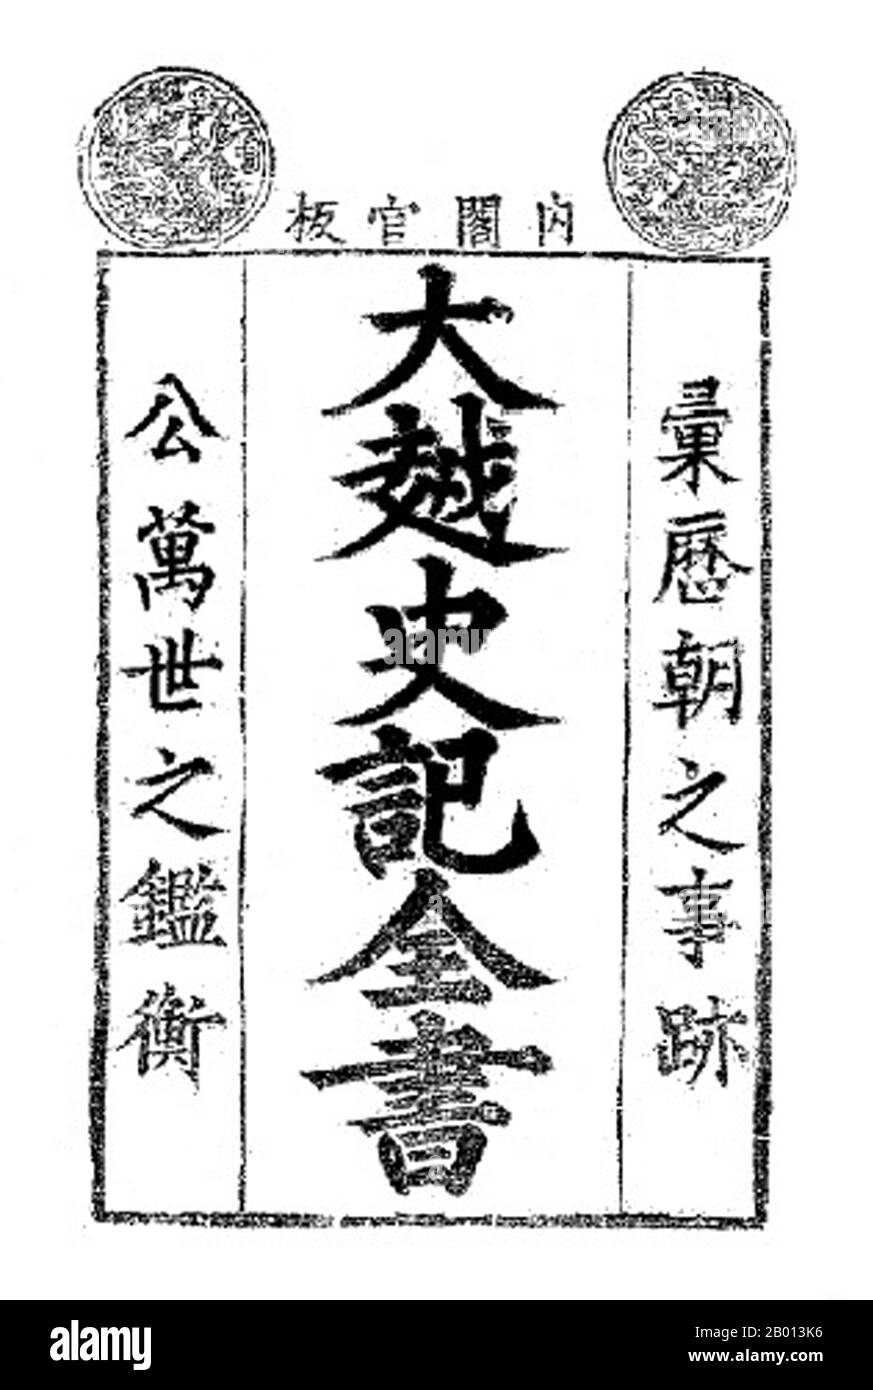 內閣官板
彙歷朝之事跡
大越史記全書
公萬世之鑑衡
alamy
Image ID: 2B013K6
www.alamy.com